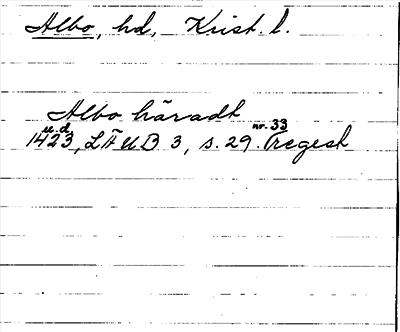 Albo, hd, Krist. l.
Albo häradh
u.d. nr. 33
1423, LÄUB 3, s. 29. Oregest